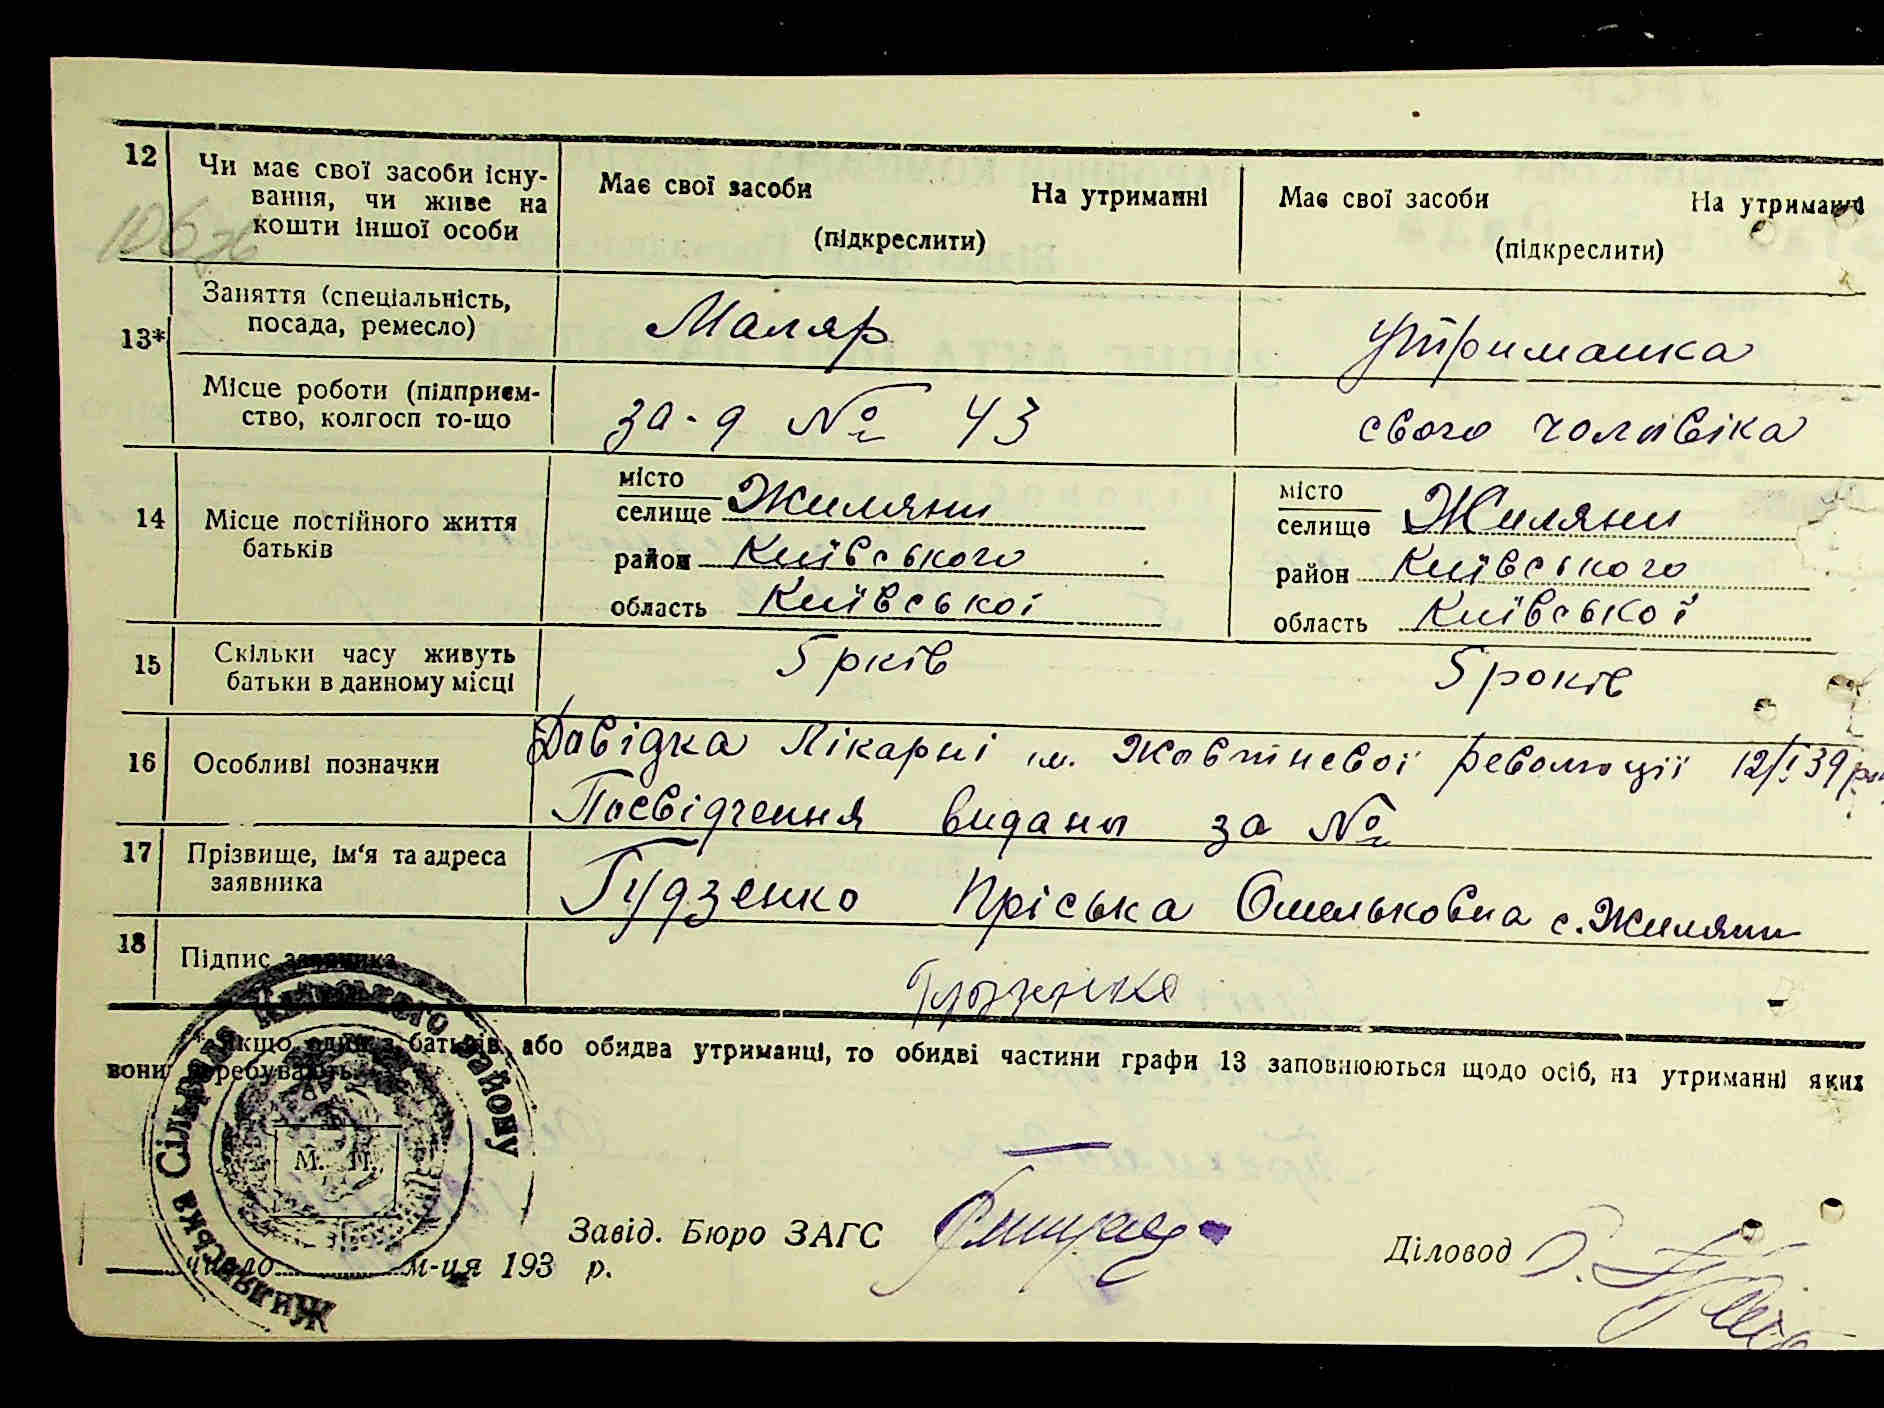 12 Чи має свої засоби існу-
вання, чи живе на
кошти іншої особи
Має свої засоби На утриманні
(підкреслити)
Має свої засоби На утриманні
(підкреслити)
13*
Заняття (спеціальність,
посада, ремесло)
Маляр
Утриманка
Місце роботи (підприєм-
ство, колгосп то-що
за-д № 43
свого чоловіка
14 Місце постійного життя
батьків
місто
селище Жиляни
район Київського
область Київської
місто
селище Жиляни
район Київського
область Київської
15 Скільки часу живуть
батьки в данному місці
5 рків
5 років
16 Особливі позначки
Довідка Лікарні ім. Жовтневої Революції 12/I 39
Посвідчення видани за №
17 Прізвище, ім'я та адреса
заявника
Гудзенко Пріська Омельковна с. Жиляни
18 Підпис заявника
Гудзенко
* Якщо один з батьків або обидва утриманці, то обидві частини графи 13 заповнюються щодо осіб, на утриманні яких
вони перебувають.
Жилянська Сільрада Київського району
М. П.
Завід. Бюро ЗАГС
Діловод
число м-ця 193 р.